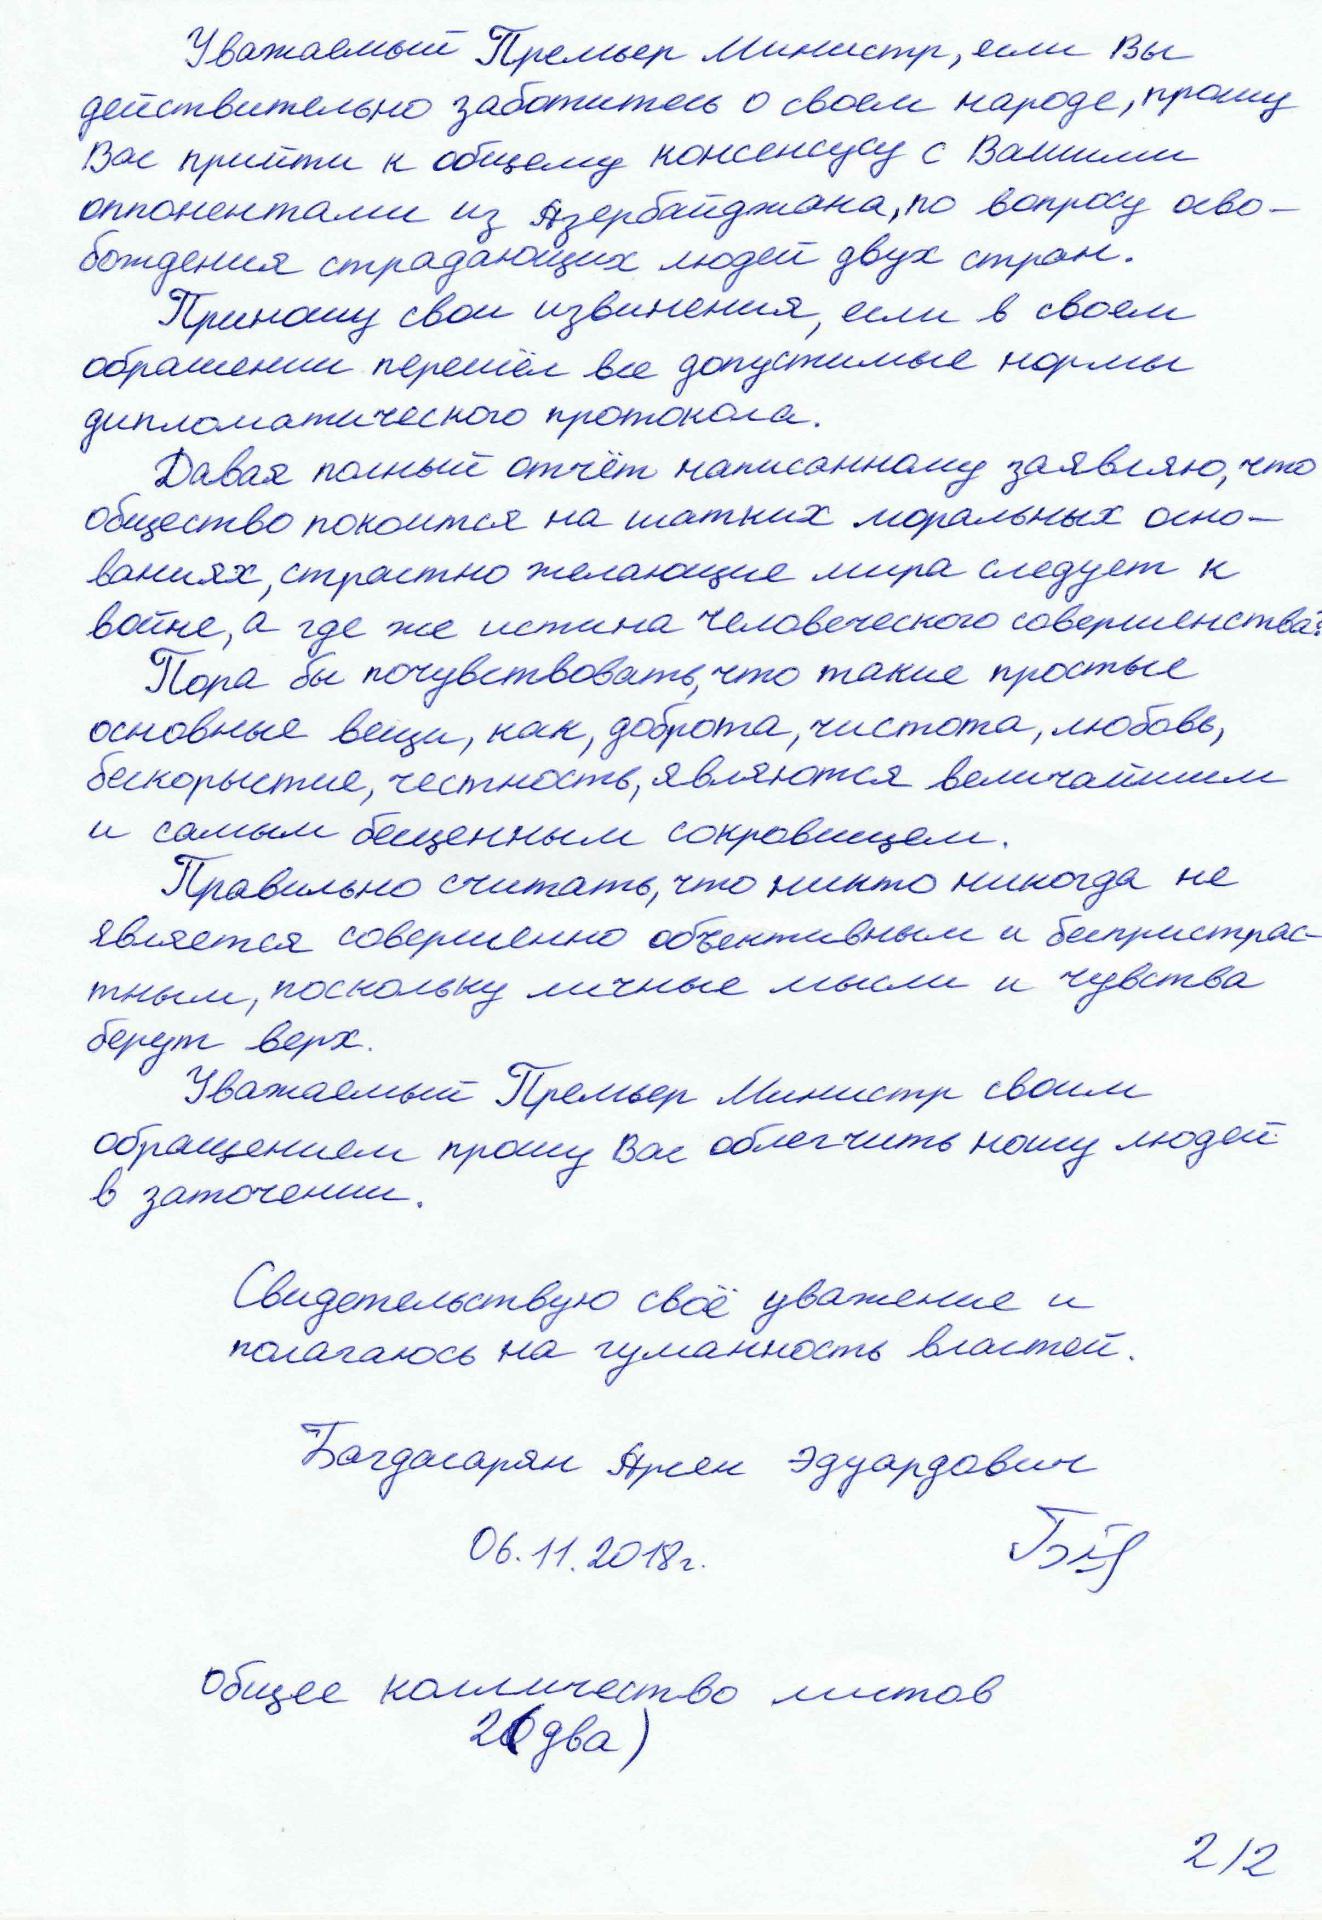 Уважаемый Премьер Министр, если Вы
действительно заботитесь о своем народе, прошу
Вас прийти к общему консенсусу с Вашими
оппонентами из Азербайджана, по вопросу осво-
бождения страдающих людей двух стран.
Приношу свои извинения, если в своем
обращении перешёл все допустимые нормы
дипломатического протокола.
Давая полный отчёт написанному заявляю, что
общество покоится на шатких моральных осно-
ваниях, страстно желающие мира следует к
войне, а где же истина человеческого совершенства?
Пора бы почувствовать, что такие простые
основные вещи, как, доброта, чистота, любовь,
бескорыстие, честность, являются величайшим
и самым бесценным сокровищем.
Правильно считать, что никто никогда не
является совершенно объективным и беспристрас-
тным, поскольку личные мысли и чувства
берут верх.
Уважаемый Премьер Министр своим
обращением прошу Вас облегчить ношу людей
в заточении.
Свидетельствую своё уважение и
полагаюсь на гуманность властей.
Багдасарян Арсен Эдуардович
06.11.2018г.
общее колличество листов
2(два)
2/2